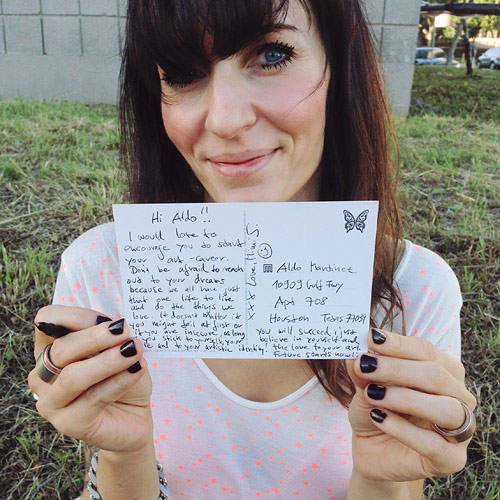 Hi Aldo!!
I would love to
encourage you to start
your art-career.
Don't be afraid to reach
out to your dreams
because we all have just
that one life to live
and do the things we
love. It doesn't matter if
you might fail at first or
if you are insecure, as long
you stick to yourself, your
and to your artistic identity!
X X X Love, Mimi S.
Aldo Martinez
10909 Gulf Fwy
Apt 708
Houston Texas 77034
You will succeed, just
believe in yourself and
the love to your art.
Future starts now!